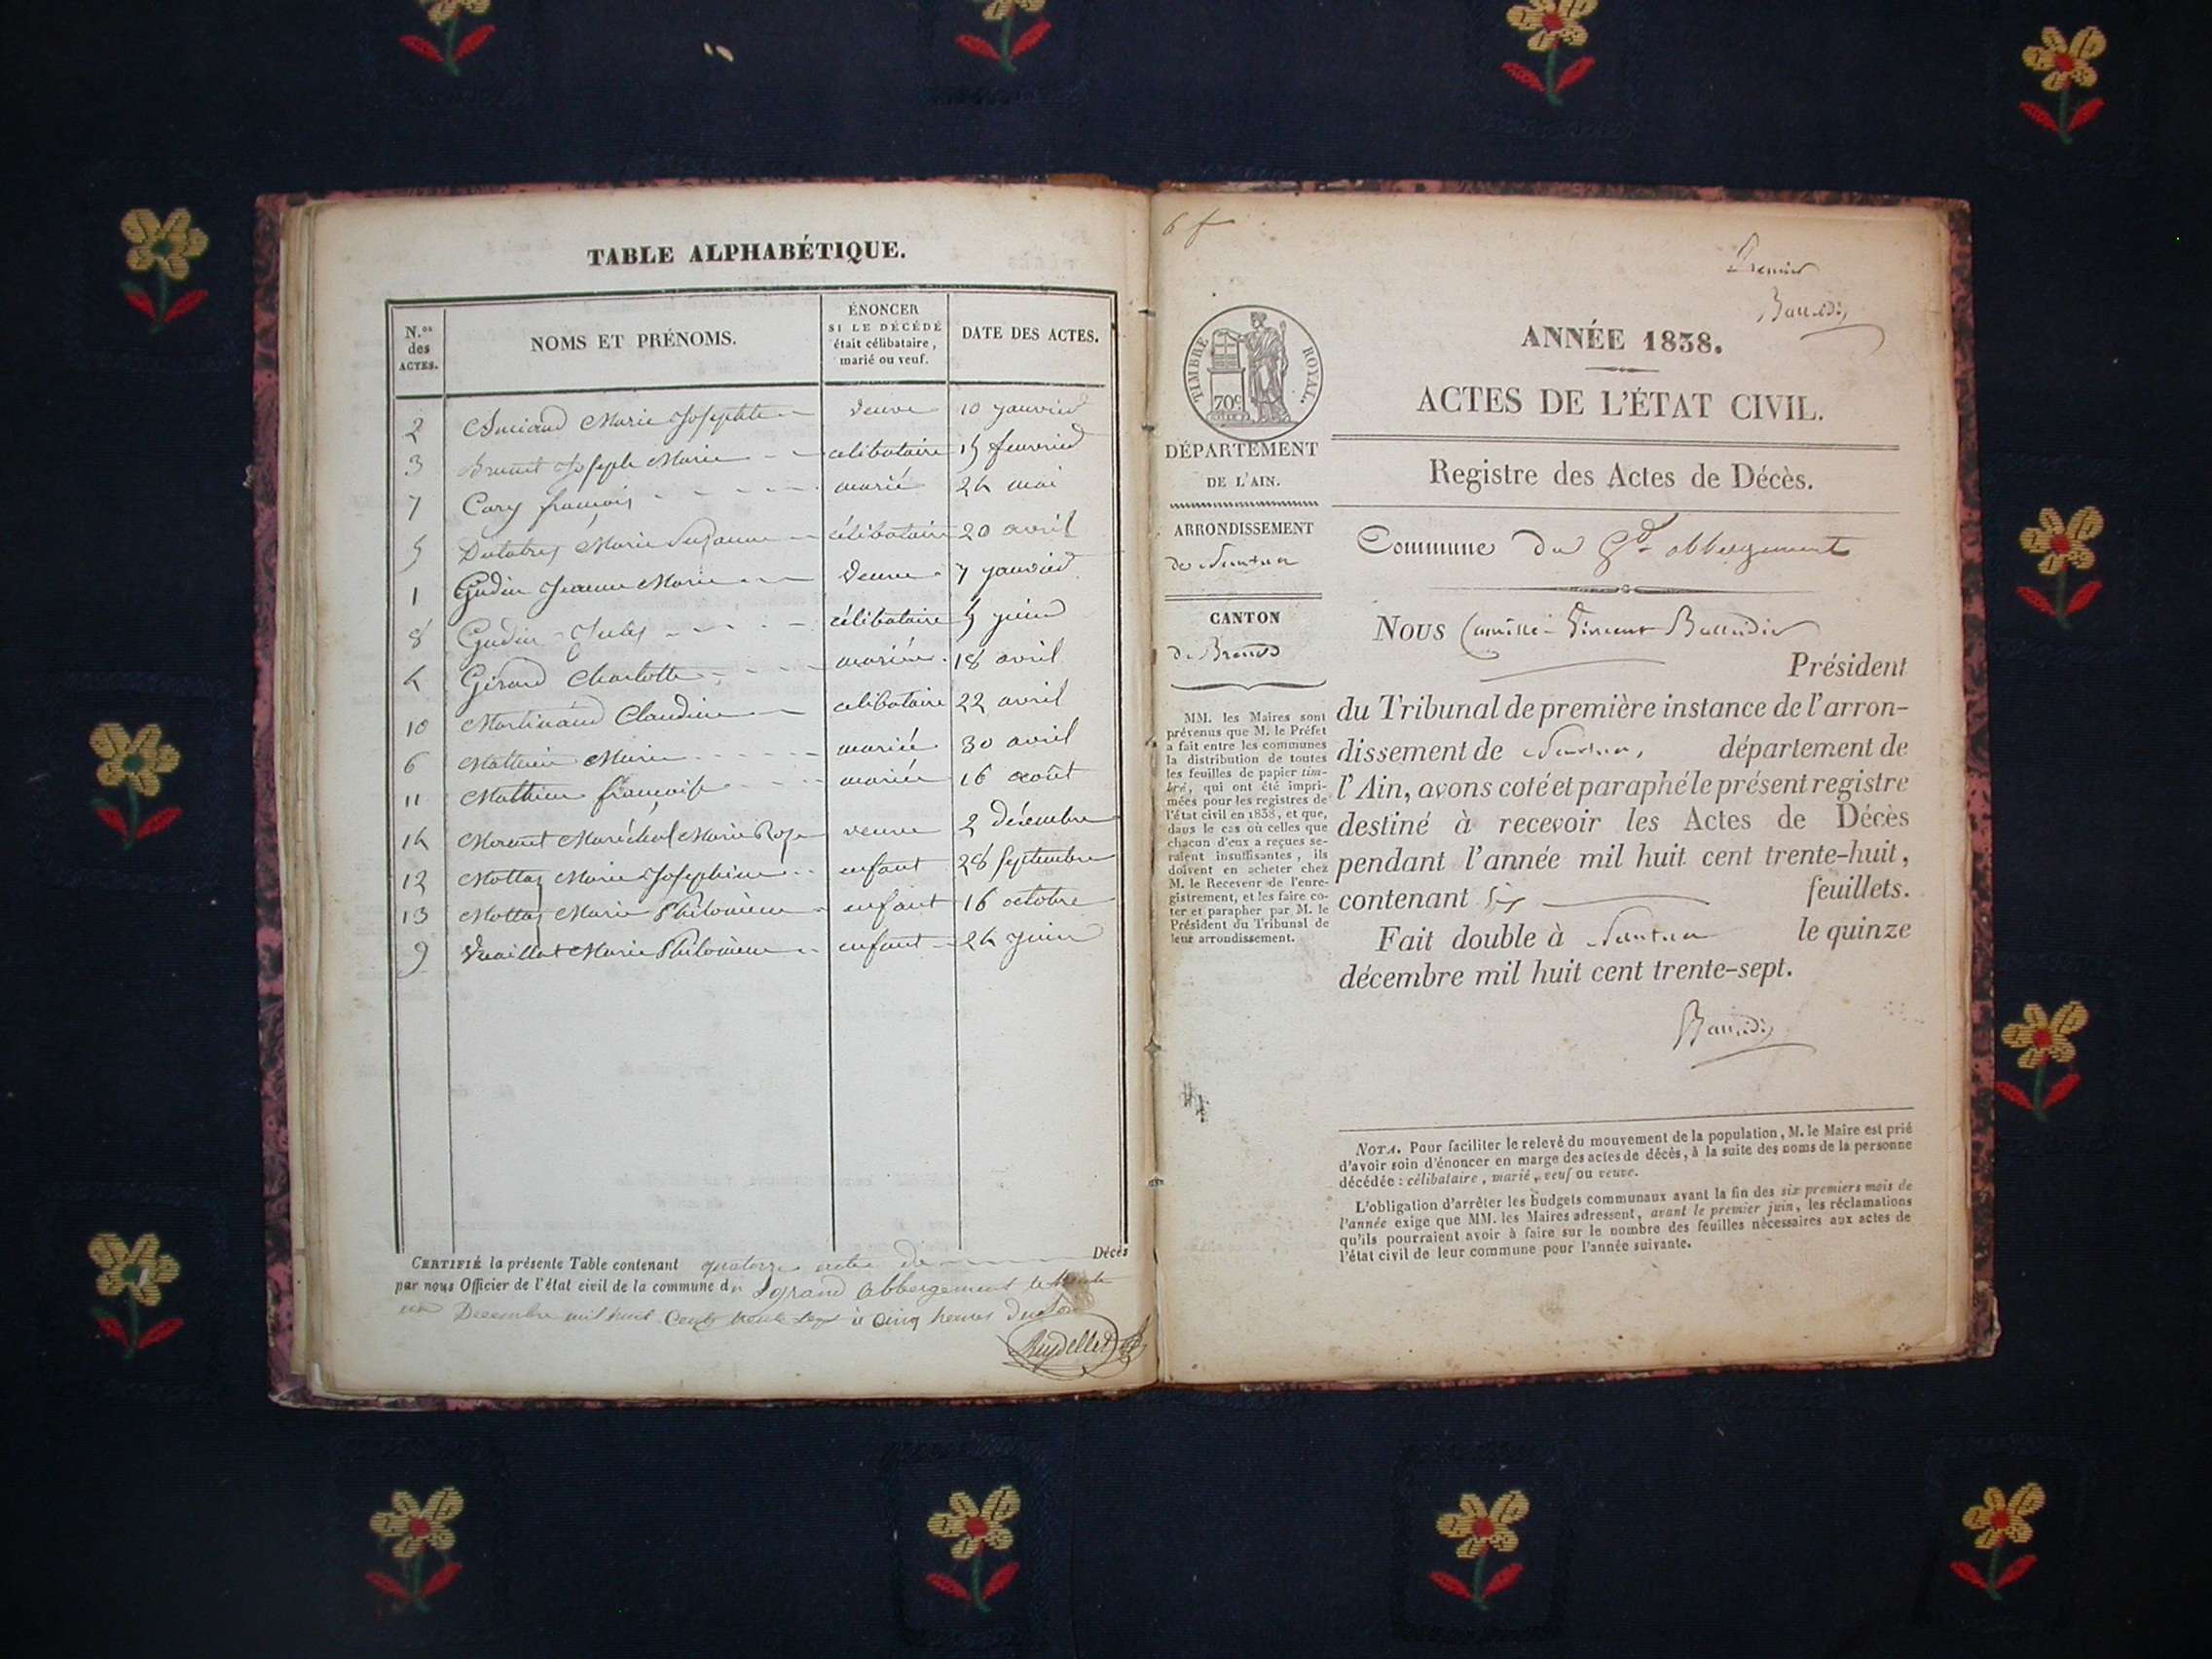 TABLE ALPHABÉTIQUE.
N.os des ACTES.
NOMS ET PRÉNOMS.
ÉNONCER
SI LE DÉCÉDÉ
était célibataire,
marié ou veuf.
DATE DES ACTES.
2 Marie Josephte veuve 10 janvier
3 Brunet Joseph Marie célibataire 15 fevrier
7 Cary françois marié 24 mai
5 Marie Suzanne célibataire 20 avril
1 Gudin Jeanne Marie veuve 7 janvier
8 Gudin Jules célibataire 5 juin
4 Girard Charlotte mariée 18 avril
10 Martinand Claudine celibataire 22 avril
6 Mathieu Marie mariée 30 avril
11 Mathieu françoise mariée 16 août
14 Mermet Maréchal Marie Rose veuve 2 décembre
12 Mottaz Marie Josephine enfant 28 septembre
13 Mottaz Marie Philomène enfant 16 octobre
9 Vuaillat Marie Philomène enfant 24 juin
CERTIFIÉ la présente Table contenant quatorze actes de Décès
par nous Officier de l'état civil de la commune du grand abbergement le trente
un Decembre mil huit Cent trente sept à Cinq heures du Soir
Reydellet
6 f
Premier
Baudin
TIMBRE ROYAL.
70c
DÉPARTEMENT
DE L'AIN.
ARRONDISSEMENT
de Nantua
CANTON
de Brenod
MM. les Maires sont
prévenus que M. le Préfet
a fait entre les communes
la distribution de toutes
les feuilles de papier tim-
bré, qui ont été impri-
mées pour les registres de
l'état civil en 1838, et que,
dans le cas où celles que
chacun d'eux a reçues se-
raient insuffisantes, ils
doivent en acheter chez
M. le Receveur de l'enre-
gistrement, et les faire co-
ter et parapher par M. le
Président du Tribunal de
leur arrondissement.
ANNÉE 1838.
ACTES DE L'ÉTAT CIVIL.
Registre des Actes de Décès.
Commune du Gd abbergement
NOUS Camille Vincent
Président
du Tribunal de première instance de l'arron-
dissement de Nantua, département de
l'Ain, avons coté et paraphé le présent registre
destiné à recevoir les Actes de Décès
pendant l'année mil huit cent trente-huit,
contenant six feuillets.
Fait double à Nantua le quinze
décembre mil huit cent trente-sept.
NOTA. Pour faciliter le relevé du mouvement de la population, M. le Maire est prié
d'avoir soin d'énoncer en marge des actes de décès, à la suite des noms de la personne
décédée : célibataire, marié, veuf ou veuve.
L'obligation d'arrêter les budgets communaux avant la fin des six premiers mois de
l'année exige que MM. les Maires adressent, avant le premier juin, les réclamations
qu'ils pourraient avoir à faire sur le nombre des feuilles nécessaires aux actes de
l'état civil de leur commune pour l'année suivante.